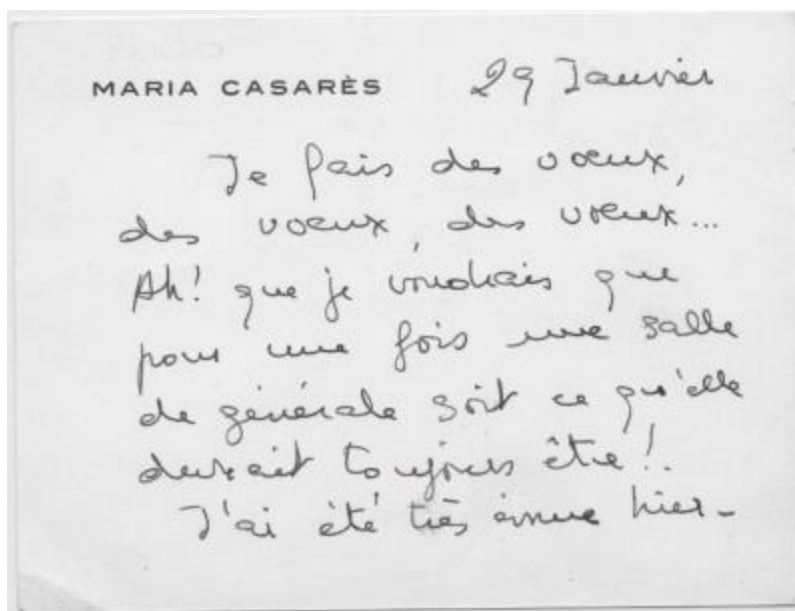 MARIA CASARÈS 29 Janvier
Je fais des vœux,
des vœux, des vœux...
Ah! que je voudrais que
pour une fois une salle
de générale soit ce qu'elle
devrait toujours être!.
J'ai été très émue hier-